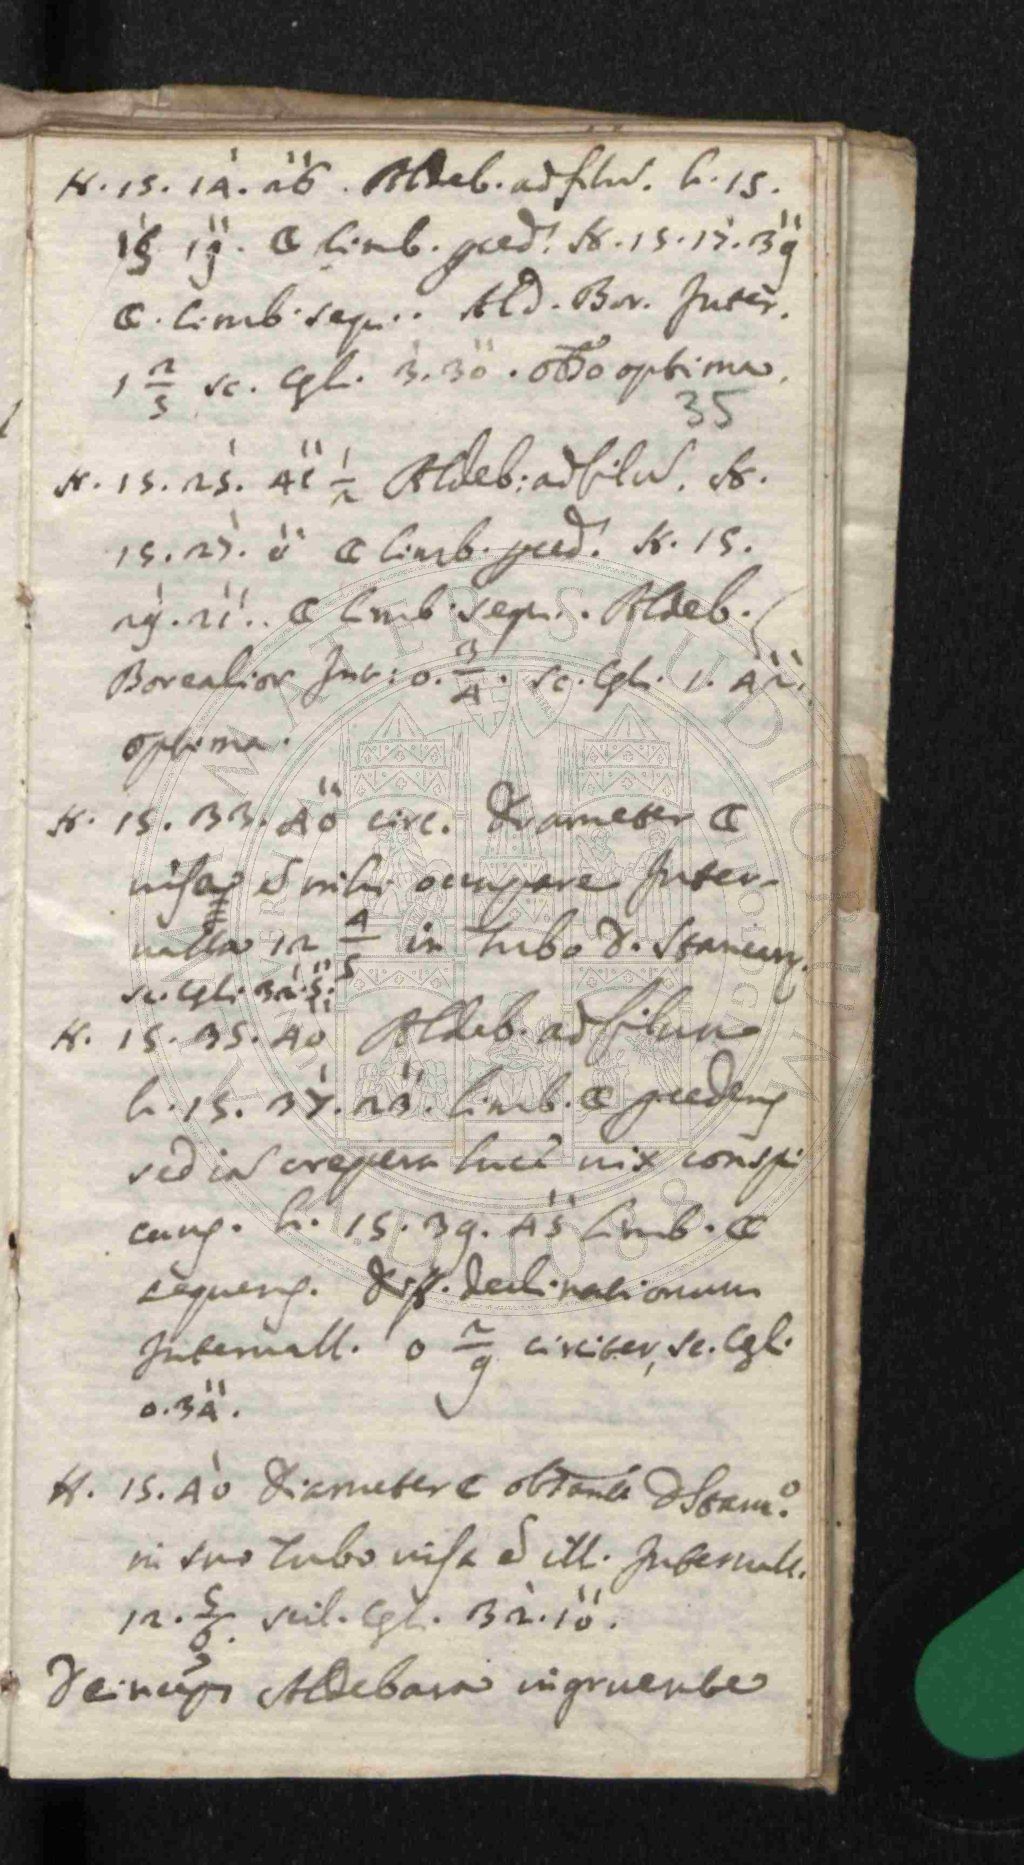 H. 15. 14'. 26''. Aldeb. ad filū. h. 15.
15' 19''. ☾ limb. præd. H. 15. 17'. 39''
☾. limb. seqn.. Ald. Bor. Inter.
1 2/5 sc. Cgli. 3'. 30''. obſo optima.
35
H. 15. 25'. 41'' 1/2 Aldeb: ad filū. H.
15. 27'. 0'' ☾ limb. præd. H. 15.
29'. 21''.. ☾ limb. seqn.. Aldeb.
Borealior Int: 0. 3/4. sc. Cgli. 1'. 42''.
optima.
H. 15. 33. 40'' circ. Diameter ☾
visa ē mihi occupare Inter-
valla 12 4/5 in tubo D. Stancarij.
sc. Cgli. 32'. 5''.
H. 15. 35. 40'' Aldeb. ad filum
h. 15. 37'. 23''. limb. ☾ præcedens
sed in crepera luce vix conspi
cuus. h. 15. 39. 45'' limb. ☾
sequens. Diff. declinationum
Intervall. 0 2/9 circiter, sc. Cgli.
0. 34''.
H. 15. 40' Diameter ☾ obſante D Stanc.º
in suo tubo visa ē ill. Intervall.
12. 5/6. scil. Cgli. 32'. 10''.
Deinceps Aldebara ingruente
ALMA MATER STUDIORUM
A.D. 1088